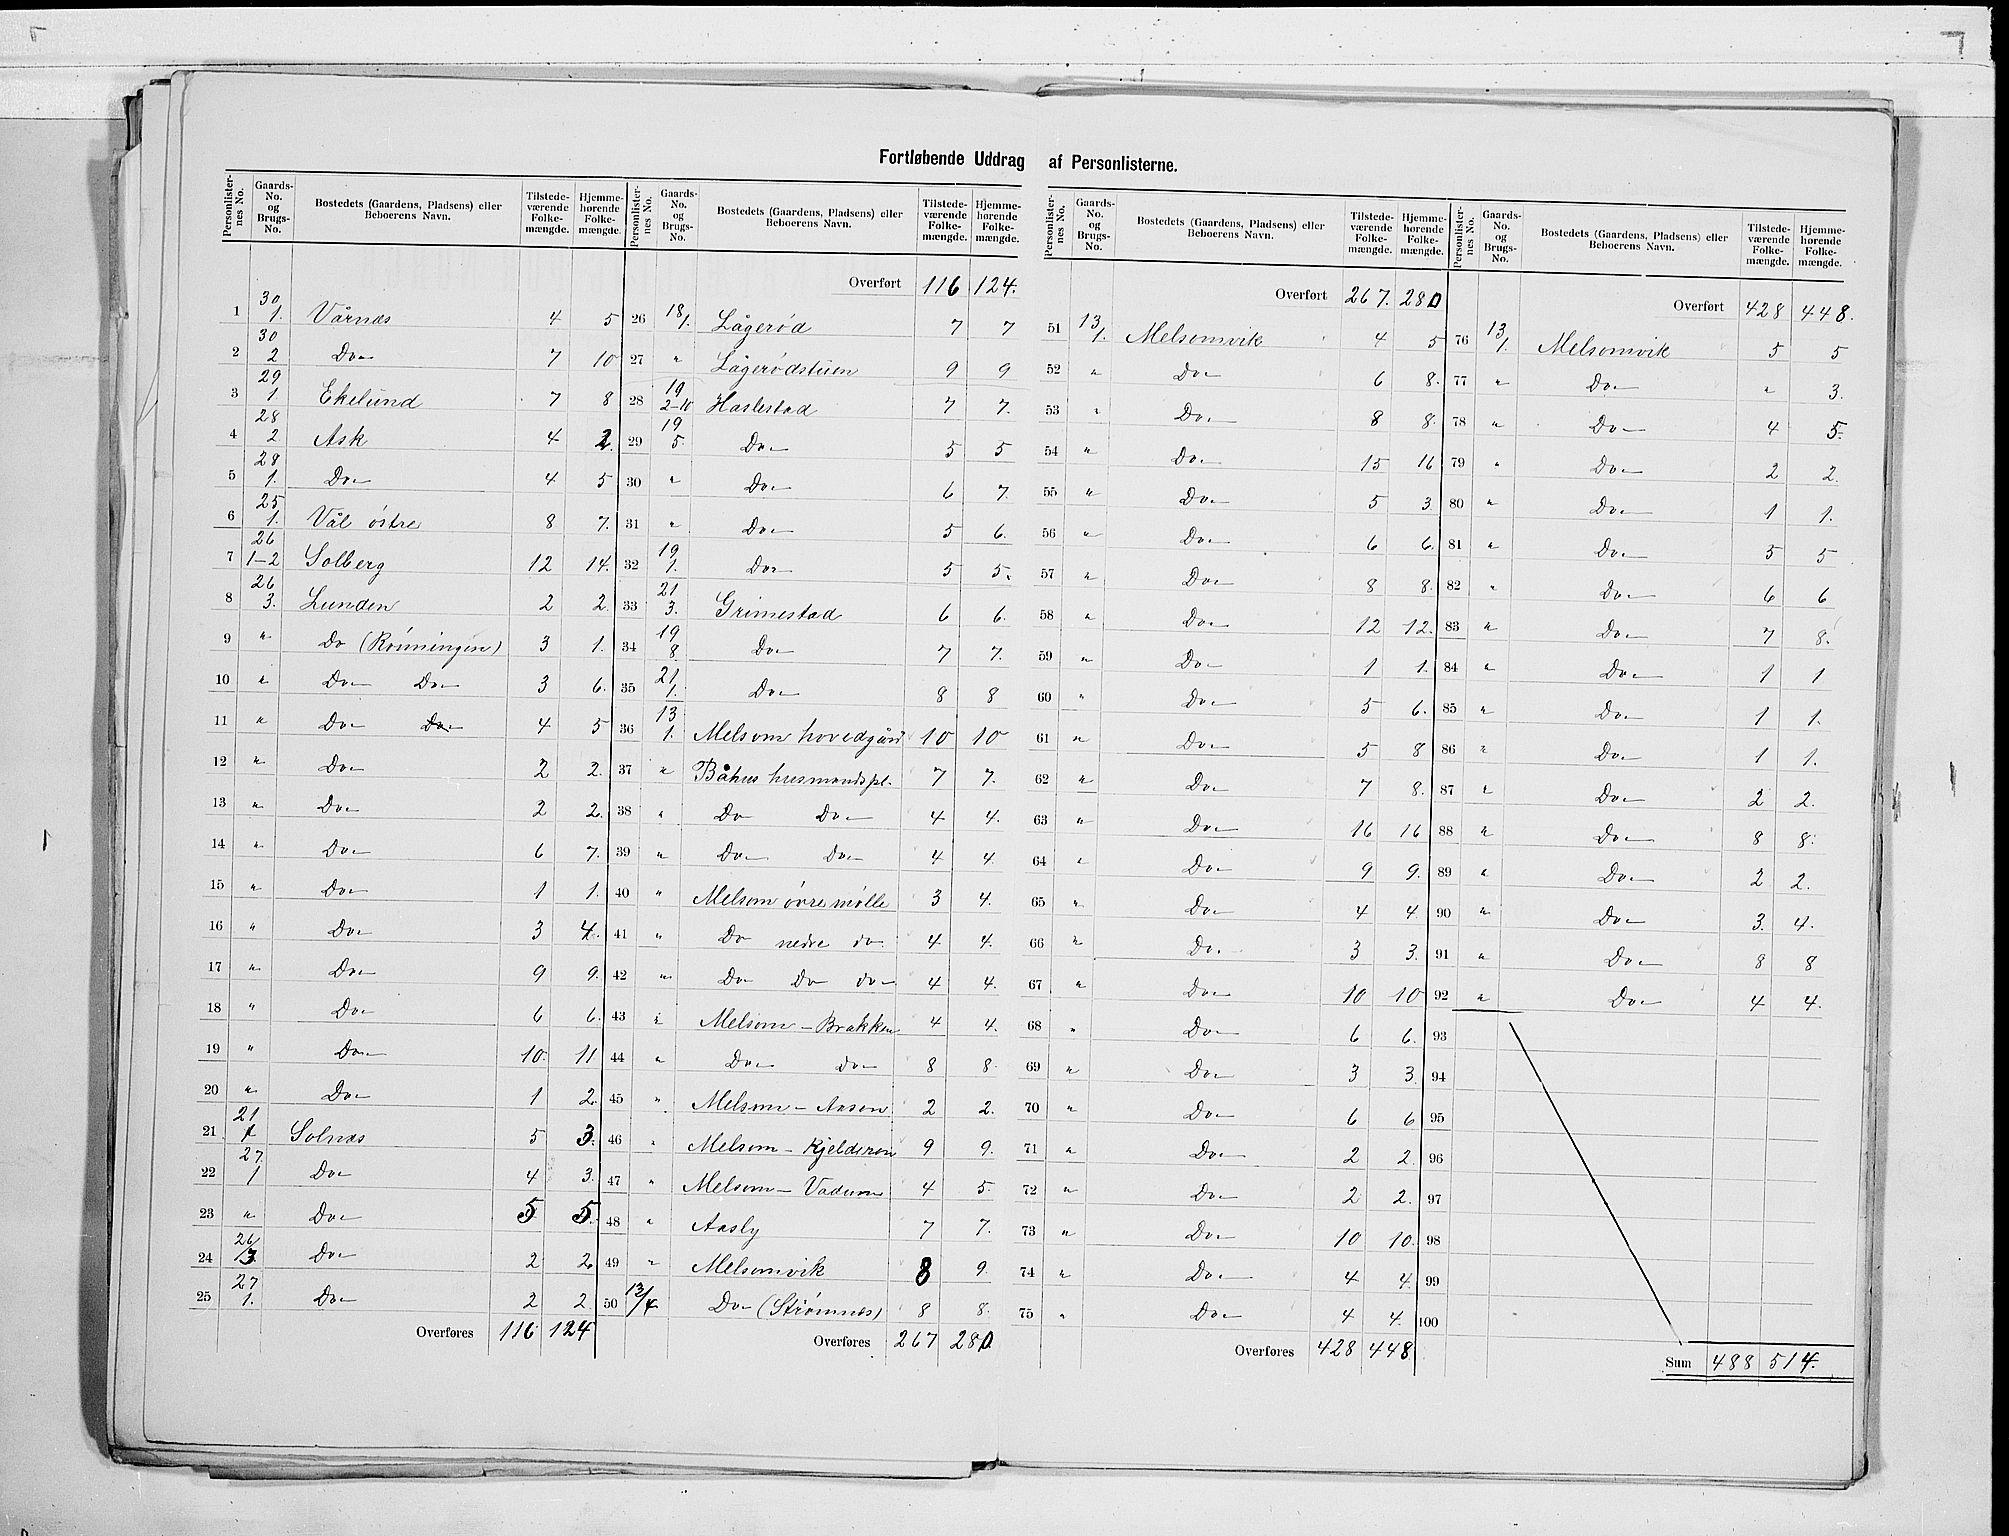 Fortløbende Uddrag af Personlisterne.
Personlisternes No. | Gaards-No. og Brugs-No. | Bostedets (Gaarden, Pladsens) eller Beboerens Navn. | Tilstedeværende Folkemængde. | Hjemmehørende Folkemængde.
1 | 30/1. | Vårnæs | 4 | 5
2 | 30/2 | Do | 7 | 10
3 | 29/1 | Ekelund | 7 | 8
4 | 28/2 | Ask | 4 | 2.
5 | 28/1. | Do | 4 | 5
6 | 25/1. | Vål östre | 8 | 7.
7 | 26/1-2 | Solberg | 12 | 14.
8 | 26/3. | Lunden | 2 | 2.
9 | " | Do (Rönningen) | 3 | 1.
10 | " | Do Do | 3 | 6.
11 | " | Do Do | 4 | 5
12 | " | Do | 2 | 2.
13 | " | Do | 2 | 2.
14 | " | Do | 6 | 7.
15 | " | Do | 1 | 1.
16 | " | Do | 3 | 4.
17 | " | Do | 9 | 9.
18 | " | Do | 6 | 6.
19 | " | Do | 10. | 11
20 | " | Do | 1 | 2.
21 | 21/1 | Solnæs | 5 | 3.
22 | 27/1 | Do | 4 | 3.
23 | " | Do | 5 | 5.
24 | 26/3 | Do | 2 | 2
25 | 27/1. | Do | 2 | 2.
Overføres | 116 | 124
Personlisternes No. | Gaards-No. og Brugs-No. | Bostedets (Gaardens, Pladsens) eller Beboerens Navn. | Tilstedeværende Folkemængde. | Hjemmehørende Folkemængde.
Overført | 116 | 124.
26 | 18/1. | Lågerød | 7 | 7
27 | " | Lågerødstuen | 9 | 9
28 | 19/2-10 | Haslestad | 7 | 7.
29 | 19/5. | Do | 5 | 5
30 | " | Do | 6 | 7.
31 | " | Do | 5 | 6.
32 | 19/1. | Do | 5 | 5.
33 | 21/3. | Grimestad | 6 | 6.
34 | 19/8. | Do | 7 | 7.
35 | 21/1. | Do | 8 | 8
36 | 13/1. | Melsom hovedgård | 10 | 10
37 | " | Båhus husmandspl. | 7 | 7.
38 | " | Do Do | 4 | 4.
39 | " | Do Do | 4 | 4.
40 | " | Melsom övre mølle | 3 | 4.
41 | " | Do nedre do | 4 | 4.
42 | " | Do Do do | 4 | 4.
43 | " | Melsom - Brakken | 4 | 4.
44 | " | Do do | 8 | 8.
45 | " | Melsom - Aasen | 2 | 2.
46 | " | Melsom - Kjelderen | 9 | 9.
47 | " | Melsom - Vadum | 4 | 5.
48 | " | Aasly | 7 | 7.
49 | " | Melsomvik | 8 | 9.
50 | 13/4 | Do (Strømnæs) | 8 | 8.
Overføres | 267 | 280
Personlisternes No. | Gaards-No. og Brugs-No. | Bostedets (Gaardens, Pladsens) eller Beboerens Navn. | Tilstedeværende Folkemængde. | Hjemmehørende Folkemængde.
Overført | 267. | 280
51 | 13/1. | Melsomvik | 4 | 5
52 | " | Do | 6 | 8.
53 | " | Do | 8 | 8.
54 | " | Do | 15 | 16
55 | " | Do | 5 | 3
56 | " | Do | 6 | 6.
57 | " | Do | 8 | 8.
58 | " | Do | 12 | 12.
59 | " | Do | 1 | 1.
60 | " | Do | 5 | 6.
61 | " | Do | 5 | 8
62 | " | Do | 7 | 8.
63 | " | Do | 16 | 16
64 | " | Do | 9 | 9.
65 | " | Do | 4 | 4
66 | " | Do | 3 | 3.
67 | " | Do | 10 | 10
68 | " | Do | 6 | 6.
69 | " | Do | 3 | 3
70 | " | Do | 6 | 6
71 | " | Do | 2 | 2.
72 | " | Do | 2 | 2.
73 | " | Do | 10 | 10.
74 | " | Do | 4 | 4.
75 | " | Do | 4 | 4.
Overføres | 428 | 448
Personlisternes No. | Gaards-No. og Brugs-No. | Bostedets (Gaardens, Pladsens) eller Beboerens Navn. | Tilstedeværende Folkemængde. | Hjemmehørende Folkemængde.
Overført | 428 | 448.
76 | 13/1. | Melsomvik | 5 | 5
77 | " | Do | " | 3.
78 | " | Do | 4 | 5.
79 | " | Do | 2 | 2.
80 | " | Do | 1 | 1.
81 | " | Do | 5 | 5
82 | " | Do | 6 | 6
83 | " | Do | 7 | 8.
84 | " | Do | 1 | 1
85 | " | Do | 1 | 1.
86 | " | Do | 1 | 1.
87 | " | Do | 2 | 2.
88 | " | Do | 8 | 8.
89 | " | Do | 2 | 2.
90 | " | Do | 3. | 4.
91 | " | Do | 8 | 8
92 | " | Do | 4 | 4.
93
94
95
96
97
98
99
100
Sum | 488 | 514.